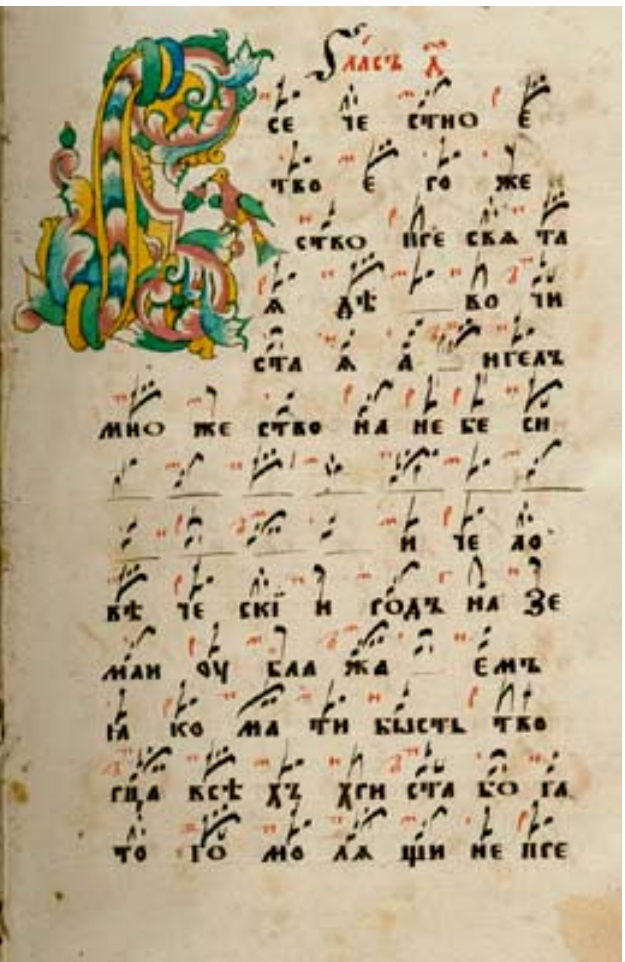 Гласъ д҃
Все че стно е
ство е го же
ство пре свѧ та
ѧ дѣ во чи
ста ѧ а нгелъ
мно же ство на не бе си
и че ло
вѣ че скї и родъ на зе
мли оу бла жа емъ
ꙗ ко ма ти бысть тво
рца всѣ хъ хри ста бо га
то го мо лѧ щи не пре